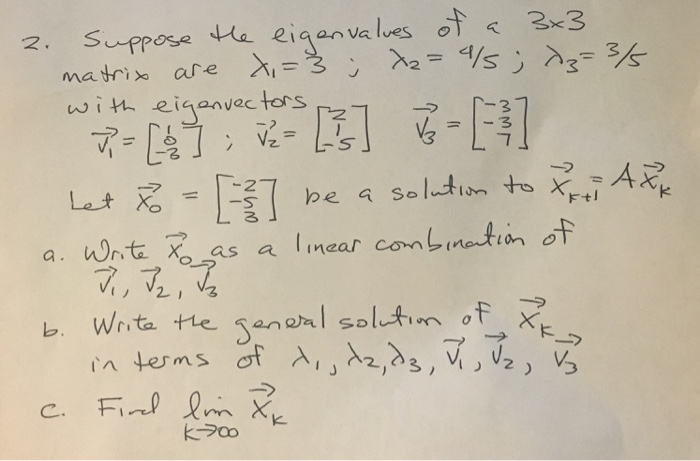 2. Suppose the eigenvalues of a 3x3
matrix are λ₁ = 3 ; λ₂ = 4/5 ; λ₃ = 3/5
with eigenvectors
v⃗₁ = [1 0 -3] ; v⃗₂ = [2 1 -5] v⃗₃ = [-3 -3 7]
Let x⃗₀ = [-2 -5 3] be a solution to x⃗ₖ₊₁ = Ax⃗ₖ
a. Write x⃗₀ as a linear combination of
v⃗₁, v⃗₂, v⃗₃
b. Write the general solution of x⃗ₖ
in terms of λ₁, λ₂, λ₃, v⃗₁, v⃗₂, v⃗₃
c. Find lim x⃗ₖ
k→∞